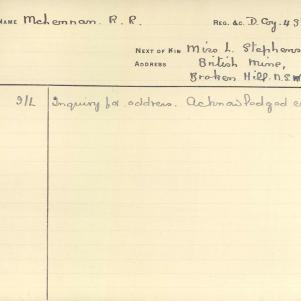 NAME McLennan. R. R. REG. &C. D. Coy. 43
NEXT OF KIN Miss L. Stephens
ADDRESS British Mine,
Broken Hill. N.S.W
9/L Inquiry for address. Acknowledged